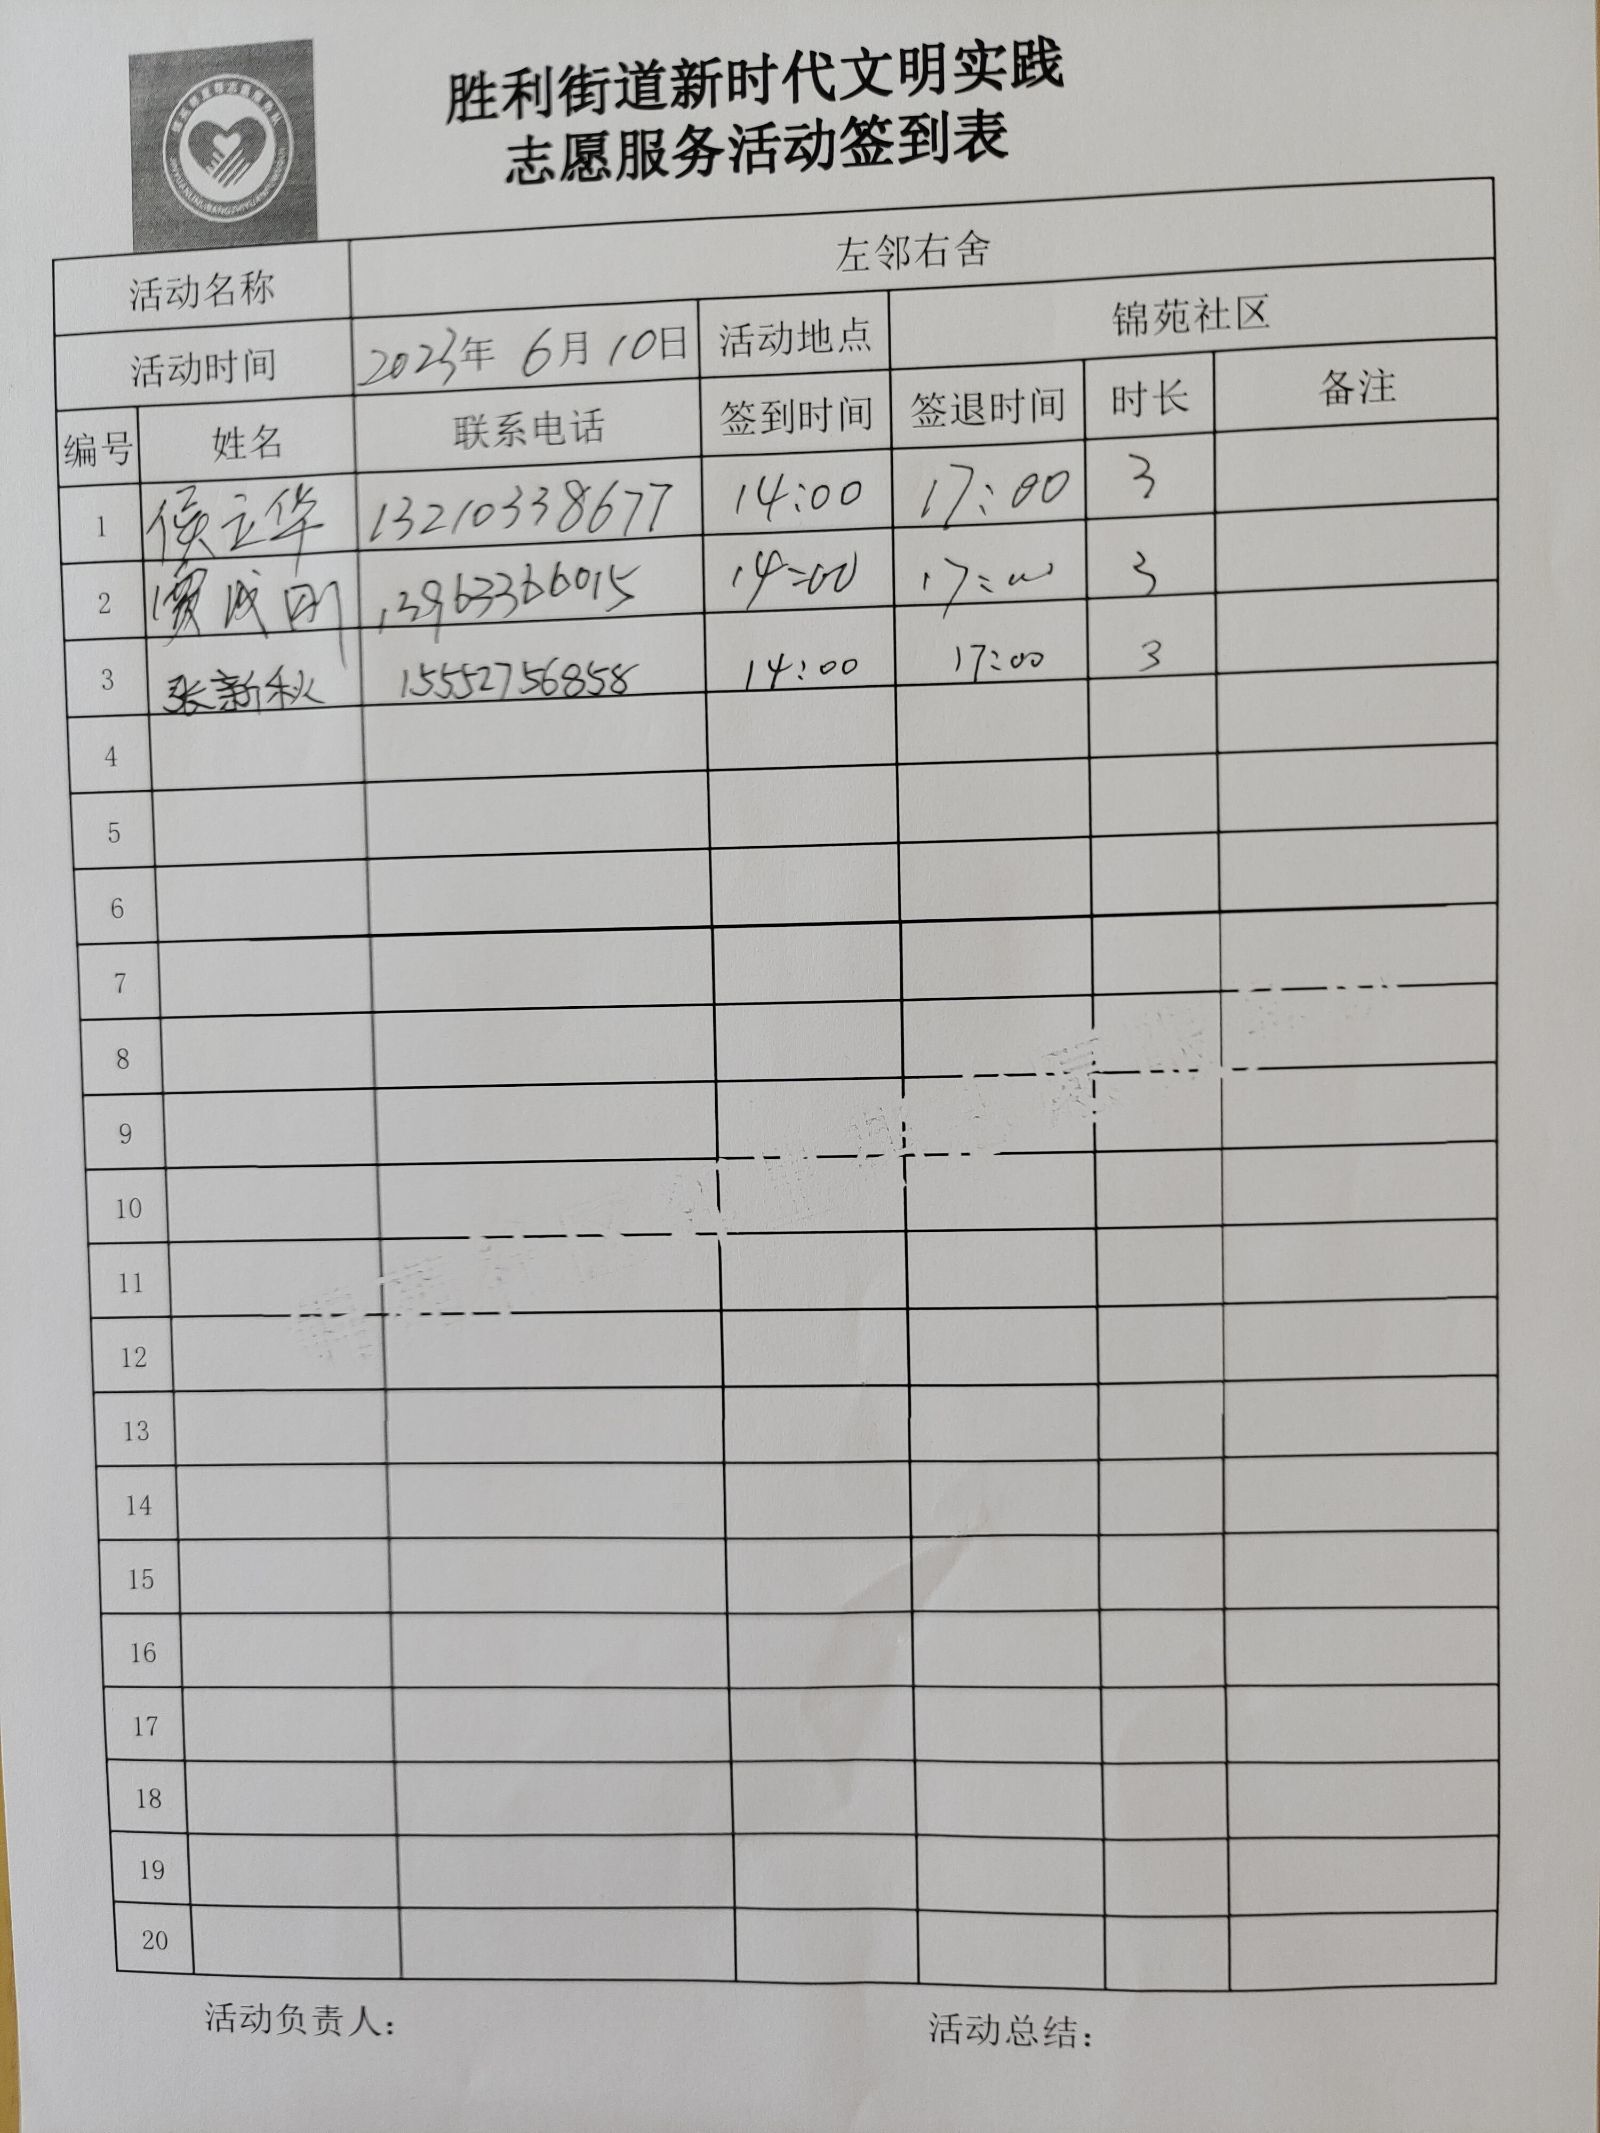 胜利街道新时代文明实践
志愿服务活动签到表
活动名称 左邻右舍
活动时间 2023年 6月10日 活动地点 锦苑社区
编号 姓名 联系电话 签到时间 签退时间 时长 备注
1 侯立华 13210338677 14:00 17:00 3
2 贾成刚 13963366015 14:00 17:00 3
3 张新秋 15552756858 14:00 17:00 3
4
5
6
7
8
9
10
11
12
13
14
15
16
17
18
19
20
活动负责人: 活动总结: